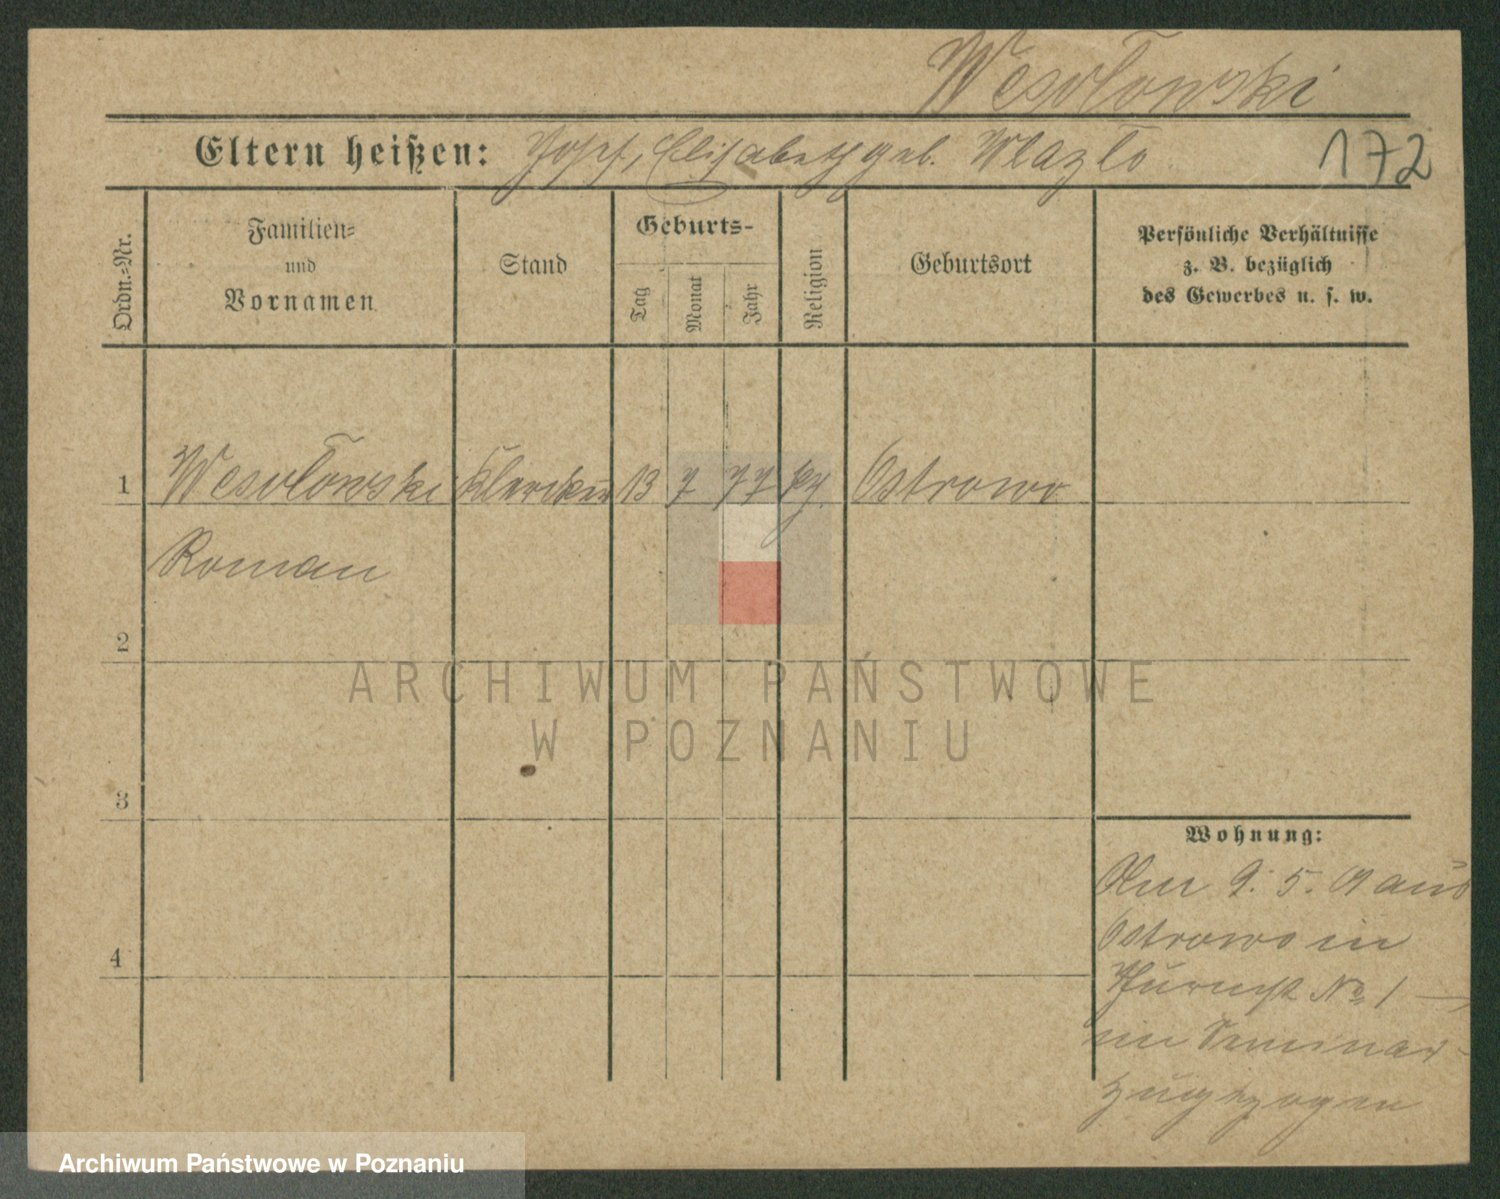 Wesołowski
Eltern heißen: Josef, Elisabeth geb. Wlazło
172
Ordn.-Nr.
Familien-
und
Vornamen
Stand
Geburts-
Tag
Monat
Jahr
Religion
Geburtsort
Persönliche Verhältnisse
z. B. bezüglich
des Gewerbes u. s. w.
1 Wesołowski Kleriker 13 7 77 Ostrowo
Roman
2
ARCHIWUM PAŃSTWOWE
W POZNANIU
3
Wohnung:
9. 5. 01 aus
4
Ostrowo in
No 1
im Seminar
zugezogen
Archiwum Państwowe w Poznaniu